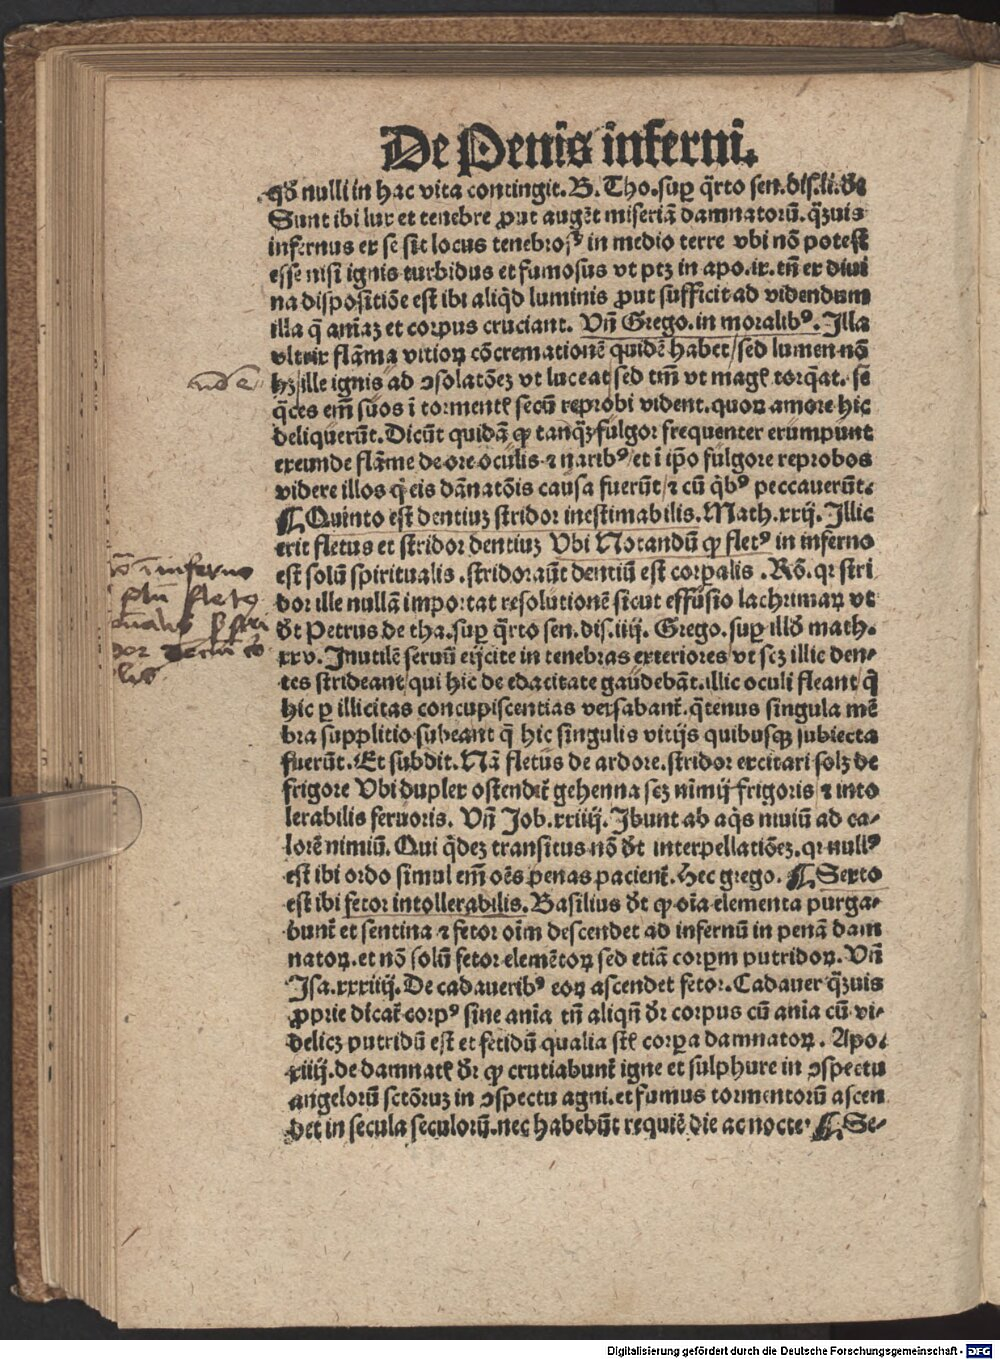 De Penis inferni.
qd nulli in hac vita contingit. B. Tho. sup q̄rto sen. dis. li. dt
Sunt ibi lux et tenebre ꝓut augēt miseriā damnatorū. q̄zuis
infernus ex se sit locus tenebrosꝰ in medio terre vbi nō potest
esse nisi ignis turbidus et fumosus vt ptz in apo. ix. tn̄ ex diui
na dispositiōe est ibi aliqd luminis ꝓut sufficit ad videndum
illa q̄ aniāz et corpus cruciant. Vn̄ Grego. in moralibꝰ. Illa
vltrix flāma vitioꝝ cōcremationē quidē habet / sed lumen nō
hz / ille ignis ad ↄsolatōez vt luceat / sed tm̄ vt magꝭ torq̄at. sē
q̄ces em̄ suos ī tormentꝭ secū reprobi vident. quoꝝ amore hic
deliquerūt. Dicūt quidā ꝙ tanq̄z fulgor frequenter erumpunt
exeunde flāme de ore oculis ⁊ naribꝰ / et ī ip̄o fulgore reprobos
videre illos q̄ eis dānatōis causa fuerūt / ⁊ cū qb̄ꝰ peccauerūt.
¶ Quinto est dentiuz stridor inestimabilis. Math. xxij. Illic
erit fletus et stridor dentiuz Vbi Notandū ꝙ fletꝰ in inferno
est solū spiritualis. stridor aūt dentiū est corꝑalis. Rō. qr stri
dor ille nullā importat resolutionē sicut effusio lachrimaꝝ vt
dt Petrus de tha. sup q̄rto sen. dis. iiij. Grego. sup illd math.
xxv. Inutilē seruū eijcite in tenebras exteriores / vt scz illic den-
tes strideant / qui hic de edacitate gaudebāt. illic oculi fleant / q̄
hic ꝑ illicitas concupiscentias versabant̄. q̄tenus singula mē
bra supplitio subeant q̄ hic singulis vitijs quibusqꝫ subiecta
fuerūt. Et subdit. Nā fletus de ardore. stridor excitari solz de
frigore Vbi duplex ostendit̄ gehenna scz nimij frigoris ⁊ into
lerabilis feruoris. Vn̄ Job. xxiiij. Ibunt ab aq̄s niuiū ad ca-
lorē nimiū. Qui q̄dez transitus nō dt interpellatiōez. qr nullꝰ
est ibi ordo simul em̄ oēs penas pacient̄. Hec grego. ¶ Sexto
est ibi fetor intollerabilis. Basilius dt ꝙ oīa elementa purga-
bunt̄ et sentina ⁊ fetor oīm descendet ad infernū in penā dam
natoꝝ. et nō solū fetor elemētoꝝ sed etiā corpm putridoꝝ. Vn̄
Isa. xxxiiij. De cadaueribꝰ eoꝝ ascendet fetor. Cadauer q̄zuis
ꝓprie dicat̄ corpꝰ sine ania tn̄ aliqn̄ dr corpus cū ania cū vi-
delicz putridū est et fetidū qualia st̄ corꝑa damnatoꝝ. Apo.
xiiij. de damnatꝭ dr ꝙ crutiabunt̄ igne et sulphure in ↄspectu
angelorū sctōruz in ↄspectu agni. et fumus tormentorū ascen
det in secula seculorū. nec habebūt requiē die ac nocte. ¶ Se-
inferno
Digitalisierung gefördert durch die Deutsche Forschungsgemeinschaft - DFG